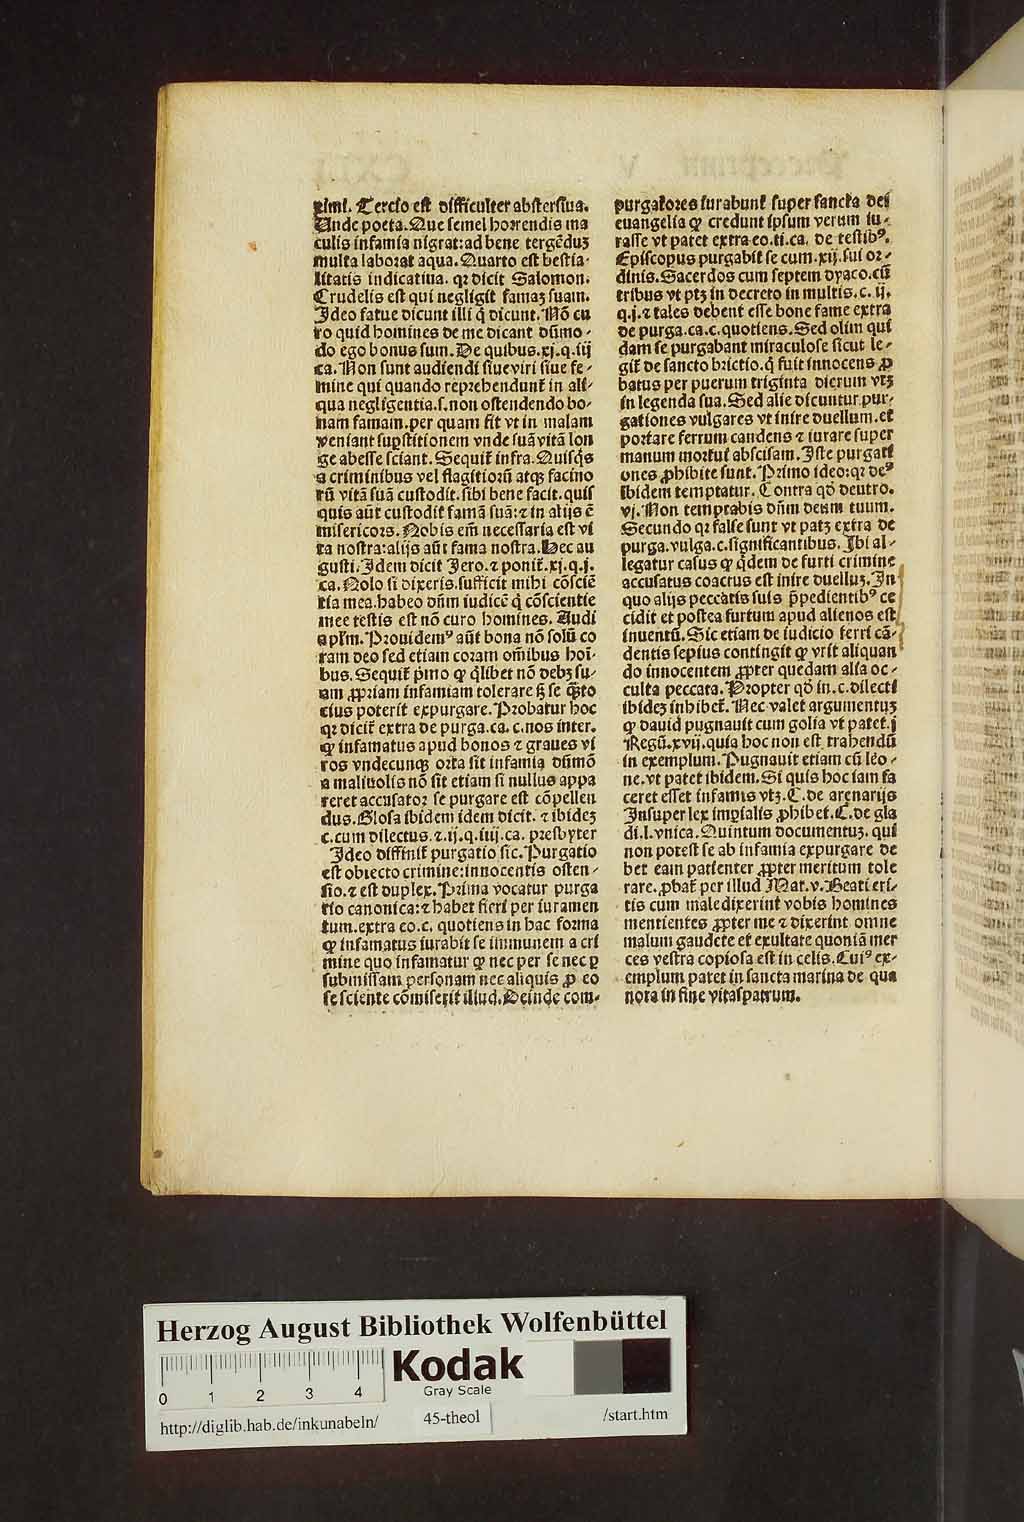 ximi. Tercio est difficulter abstersiua.
Unde poeta. Que semel horrendis ma
culis infamia nigrat: ad bene tergēduꝫ
multa laborat aqua. Quarto est bestia-
litatis indicatiua. qꝛ dicit Salomon.
Crudelis est qui negligit famaꝫ suam.
Ideo fatue dicunt illi q̇ dicunt. Nō cu
ro quid homines de me dicant dūmo-
do ego bonus sum. De quibus. xj. q. iij
ca. Non sunt audiendi siue viri siue fe-
mine qui quando reprehendunt̃ in ali-
qua negligentia. s. non ostendendo bo-
nam famam. per quam fit vt in malam
veniant suꝑstitionem vnde suā vitā lon
ge abesse sciant. Sequit̃ infra. Quisq̇s
a criminibus vel flagitiorū atqꝫ facino
rū vitā suā custodit. sibi bene facit. quis
quis aūt custodit famā suā: ⁊ in alijs ē
misericors. Nobis em̄ necessaria est vi
ta nostra: alijs aūt fama nostra. Hec au
gusti. Idem dicit Jero. ⁊ ponit̃. xj. q. j.
ca. Nolo si dixeris. sufficit mihi cōsciē
tia mea. habeo dn̄m iudicē q̇ cōscientie
mee testis est nō curo homines. Audi
apl̄m. Prouidemꝰ aūt bona nō solū co
ram deo sed etiam coram om̄ibus hoī
bus. Sequit̃ p̄mo ꝙ q̇libet nō debꝫ su-
am ꝓpriam infamiam tolerare sꝫ se q̄ꝫto
cius poterit expurgare. Probatur hoc
qꝛ dicit̃ extra de purga. ca. c. nos inter.
ꝙ infamatus apud bonos ⁊ graues vi
ros vndecunqꝫ orta sit infamia dūmō
a maliuolis nō sit etiam si nullus appa
reret accusator se purgare est cōpellen
dus. Glosa ibidem idem dicit. ⁊ ibideꝫ
c. cum dilectus. ⁊. ij. q. iiij. ca. presbyter
Ideo diffinit̃ purgatio sic. Purgatio
est obiecto crimine: innocentis osten-
sio. ⁊ est duplex. Prima vocatur purga
tio canonica: ⁊ habet fieri per iuramen
tum. extra eo. c. quotiens in hac forma
ꝙ infamatus iurabit se immunem a cri
mine quo infamatur ꝙ nec per se nec ꝑ
submissam personam nec aliquis ꝓ eo
se sciente cōmiserit illud. Deinde com-
purgatores iurabunt super sancta dei
euangelia ꝙ credunt ipsum verum iu-
rasse vt patet extra eo. ti. ca. de testibꝰ.
Episcopus purgabit se cum. xij. sui or-
dinis. Sacerdos cum septem dyaco. cū
tribus vt ptꝫ in decreto in multis. c. ij.
q. j. ⁊ tales debent esse bone fame extra
de purga. ca. c. quotiens. Sed olim qui
dam se purgabant miraculose sicut le-
git̃ de sancto brictio. q̇ fuit innocens ꝓ
batus per puerum triginta dierum vtꝫ
in legenda sua. Sed alie dicuntur pur-
gationes vulgares vt inire duellum. et
portare ferrum candens ⁊ iurare super
manum mortui abscisam. Iste purgati
ones ꝓhibite sunt. Primo ideo: qꝛ deꝰ
ibidem temptatur. Contra qd̄ deutro.
vj. Non temptabis dn̄m deum tuum.
Secundo qꝛ false sunt vt patꝫ extra de
purga. vulga. c. significantibus. Ibi al-
legatur casus ꝙ q̇dem de furti crimine
accusatus coactus est inire duelluꝫ. In
quo alijs peccatis suis p̄pedientibꝰ ce
cidit et postea furtum apud alienos est
inuentū. Sic etiam de iudicio ferri cā-
dentis sepius contingit ꝙ vrit aliquan
do innocentem ꝓpter quedam alia oc-
culta peccata. Propter qd̄ in. c. dilecti
ibideꝫ inhibet̃. Nec valet argumentuꝫ
ꝙ dauid pugnauit cum golia vt patet. j
Regū. xvij. quia hoc non est trahendū
in exemplum. Pugnauit etiam cū leo-
ne. vt patet ibidem. Si quis hoc iam fa
ceret esset infamis vtꝫ. C. de arenarijs
Insuper lex imꝑialis ꝓhibet. C. de gla
di. l. vnica. Quintum documentuꝫ. qui
non potest se ab infamia expurgare de
bet eam patienter ꝓpter meritum tole
rare. ꝓbat̃ per illud Mat. v. Beati eri-
tis cum maledixerint vobis homines
mentientes ꝓpter me ⁊ dixerint omne
malum gaudete et exultate quoniā mer
ces vestra copiosa est in celis. Cuiꝰ ex-
emplum patet in sancta marina de qua
nota in fine vitaspatrum.
Herzog August Bibliothek Wolfenbüttel
Kodak
Gray Scale
0 1 2 3 4
http://diglib.hab.de/inkunabeln/ 45-theol /start.htm